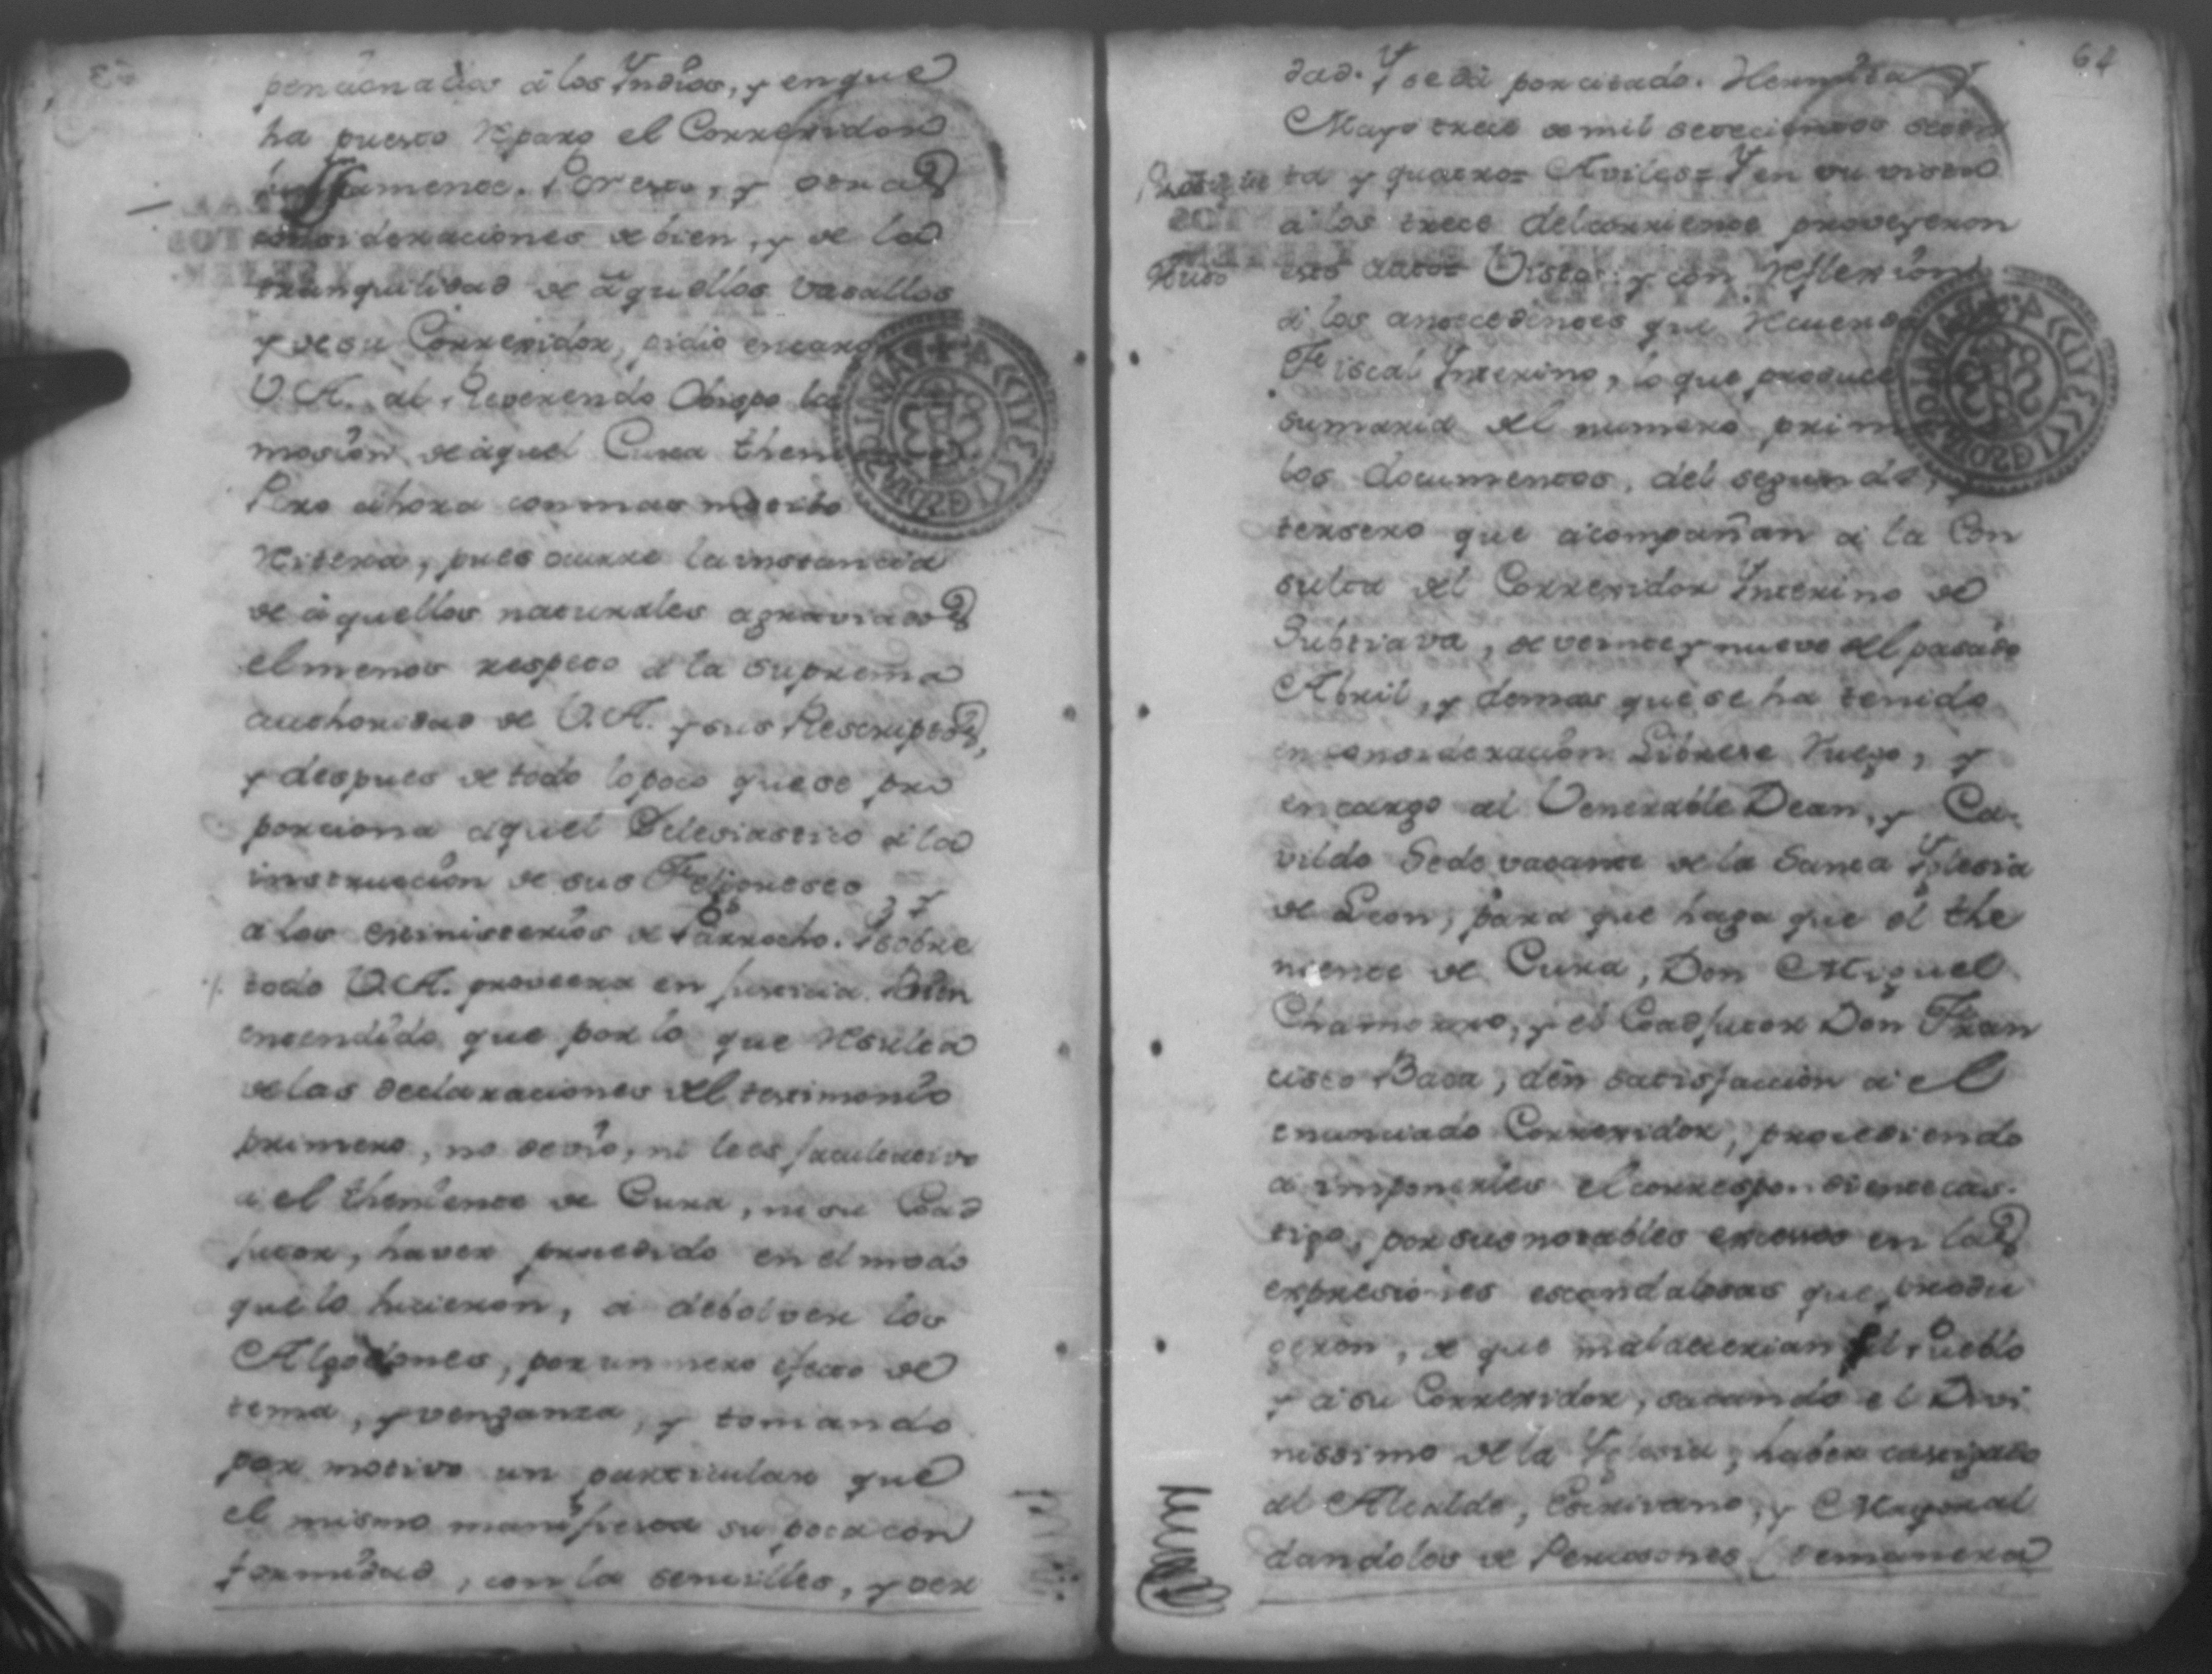 pencionados á los Yndios, y en que
ha puesto reparo el Corregidor
justamente. Por esto, y otras
consideraciones de bien, y de la
tranquilidad de aquellos vasallos
y de su Corregidor, pidio encargo
V.A. al Reverendo Obispo la
mosion de aquel Cura
Pero ahora con mas merito
reitera, pues ocurre la instancia
de aquellos naturales agraviados
el menos respeto á la suprema
authoridad de V.A. y sus Rescriptos,
y despues de todo lo poco que se pro
porciona aquel Eclesiastico á la
instruccion de sus Feligreses
á los ministerios de Parrocho. Sobre
todo V.A. proveera en justicia. Bien
entendido que por lo que resulta
de las declaraciones del testimonio
primero, no devio, ni le es facultativo
a el theniente de Cura, ni su Coad
jutor, haver procedido en el modo
que lo hicieron, á debolver los
Algodones, por un mero efecto de
tema, y venganza, y tomando
por motivo un particular que
el mismo manifiesta su poca con
formidad, con la sencilles, y ver
64
dad. Y se dá por citado. Hermita y
Mayo trece de mil setecientos seten
ta y quatro= Aviles= Y en su vista
á los trece del corriente proveyeron
Auto este auto= Visto: y con reflexion
á los antecedentes que recuerda
Fiscal Interino, lo que produce
sumaria del numero prim
los documentos, del segundo,
tersero que acompañan á la Con
sulta del Corregidor Ynterino de
Subtiava, de veinte y nueve del pasado
Abril, y demas que se ha tenido
en consideracion Librese Ruego, y
encargo al Venerable Dean, y Ca-
vildo Sede vacante de la Santa Yglesia
de Leon, para que haga que el the
niente de Cura, Don Miguel
Chamorro, y el Coadjutor Don Fran
cisco Baca, dén satisfaccion á el
enunciado Corregidor, procediendo
á imponerles el correspondiente cas-
tigo, por sus notables excessos en las
expresiones escandalosas que produ
geron, de que maldecirian el Pueblo
y á su Corregidor, sacando el Divi
nissimo de la Yglesia, haber castigado
al Alcalde, Escrivano, y Mayoral
dandoles de Pescosones (demanera